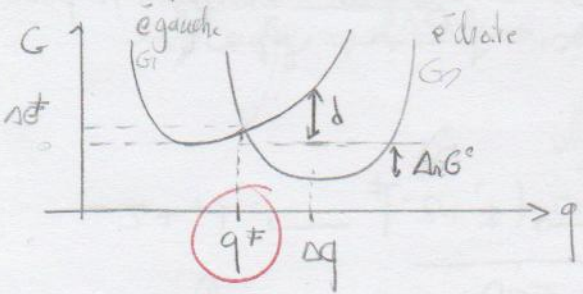 G
é gauche
G₁
é droite
G₂
ΔG‡
0
d
ΔrG°
q‡
Δq
q